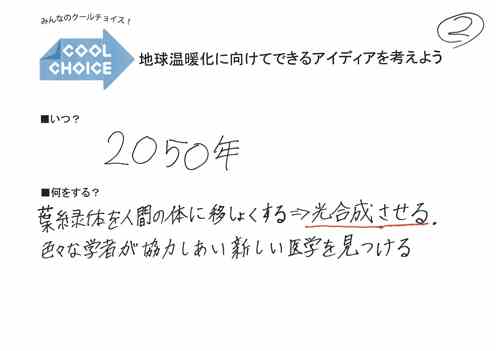 みんなのクールチョイス！
②
COOL
CHOICE
地球温暖化に向けてできるアイディアを考えよう
■いつ？
2050年
■何をする？
葉緑体を人間の体に移しょくする⇒光合成させる.
色々な学者が協力しあい新しい医学を見つける